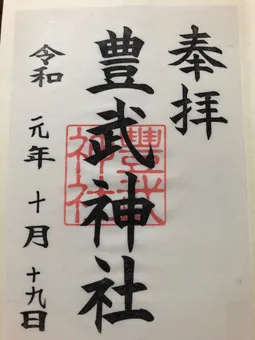 奉拝
豊武神社
豐武神社
令和元年十月十九日